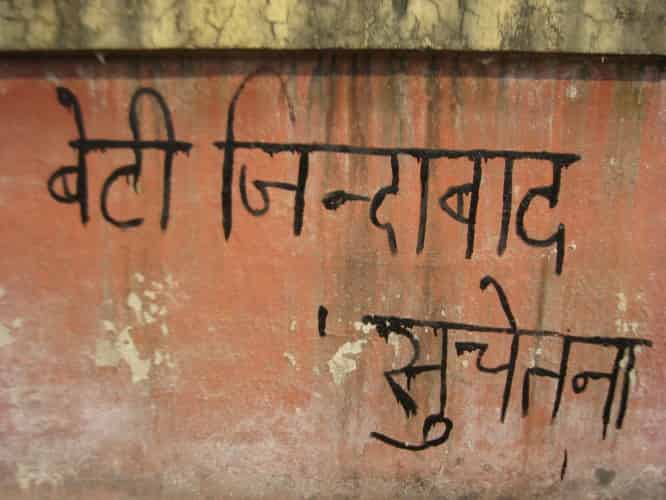 बेटी जिन्दाबाद
सुचेतना